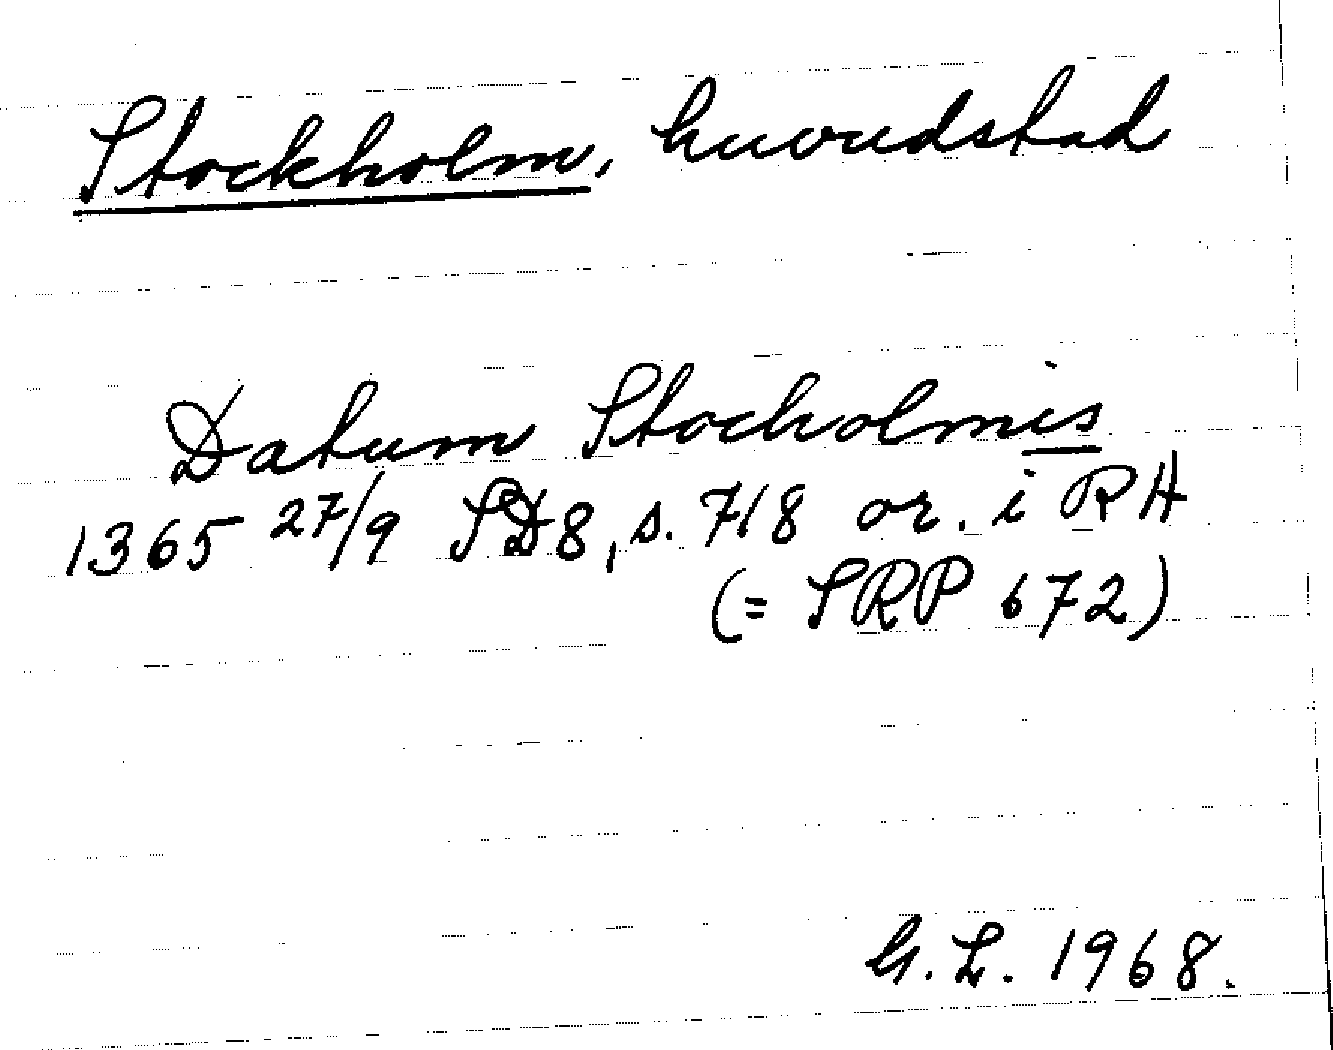 Stockholm, huvudstad
Datum Stocholmis
1365 27/9 SD8, s. 718 or. i RH
(= SRP 672)
G. L. 1968.